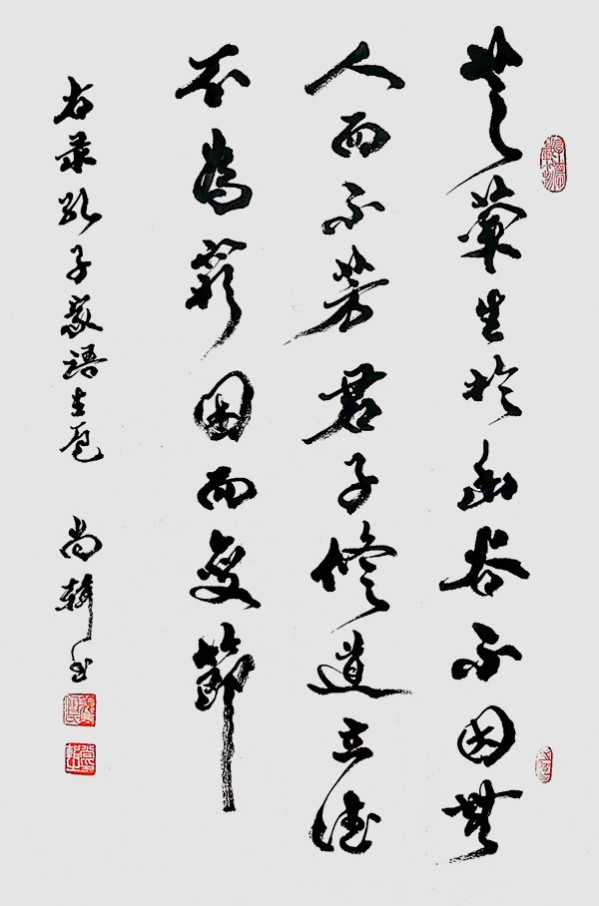 芝蘭生於幽谷不因無
人而不芳君子修道立德
不為窮困而變節
右录孔子家語在厄 尚书